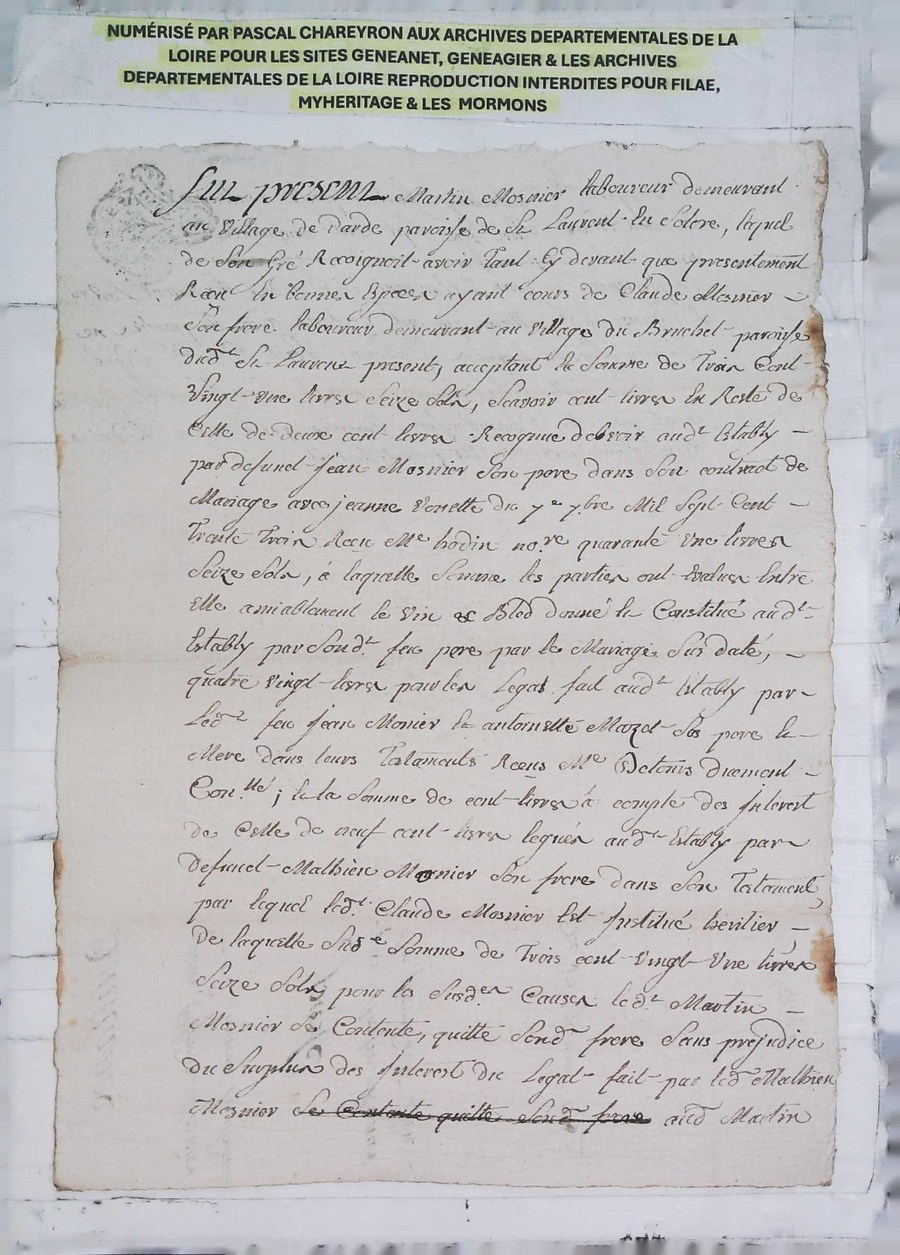 NUMÉRISÉ PAR PASCAL CHAREYRON AUX ARCHIVES DEPARTEMENTALES DE LA
LOIRE POUR LES SITES GENEANET, GENEAGIER & LES ARCHIVES
DEPARTEMENTALES DE LA LOIRE REPRODUCTION INTERDITES POUR FILAE,
MYHERITAGE & LES MORMONS
Fut present Martin Mosnier laboureur demeurant
au village de darde paroisse de St Laurent En Solore, lequel
de Son Gré Recognoit avoir tant Cy devant que presentement
Receu En bonnes Espèces ayant cours de Claude Mosnier
Son frere laboureur demeurant au village du Bruchet paroisse
dudt St Laurent present, acceptant la Somme de Trois Cent
Vingt une livres Seize Sols, Scavoir cent livres En Reste de
Celle de deux cent livres Recognue debvoir audt Estably
par defunct Jean Mosnier Son pere dans Son contract de
Mariage avec jeanne du 7e 7bre Mil Sept Cent
Trante Trois Receu Me hodin nore quarante Une livres
Seize Sols, à laquelle Somme les parties ont Evalué Entre
Elle amiablement le Vin & Bled donné Et Constitué audt
Estably par Sondt feu pere par le Mariage Sus daté,
quatre Vingt livres pour les Legat fait audt Estably par
Ledt feu Jean Monier Et antoinette Mazet Ses pere Et
Mere dans leurs Testaments Receus Me duement
Conllé ; Et la Somme de cent livres à compte des Interest
de Celle de neuf cent livres legués audt Estably par
defunct Mathieu Mosnier Son frere dans Son Testament,
par lequel ledt Claude Mosnier Est Institué heritier
De laquelle Susde Somme de Trois cent Vingt Une livres
Seize Sols pour les Susdes Causes ledt Martin
Mosnier Se Contente, quitte Sondt frere Sans prejudice
du Surplus des Interest du Legat fait par ledt Mathieu
Mosnier Se Contente quitte Sondt frere audt Martin